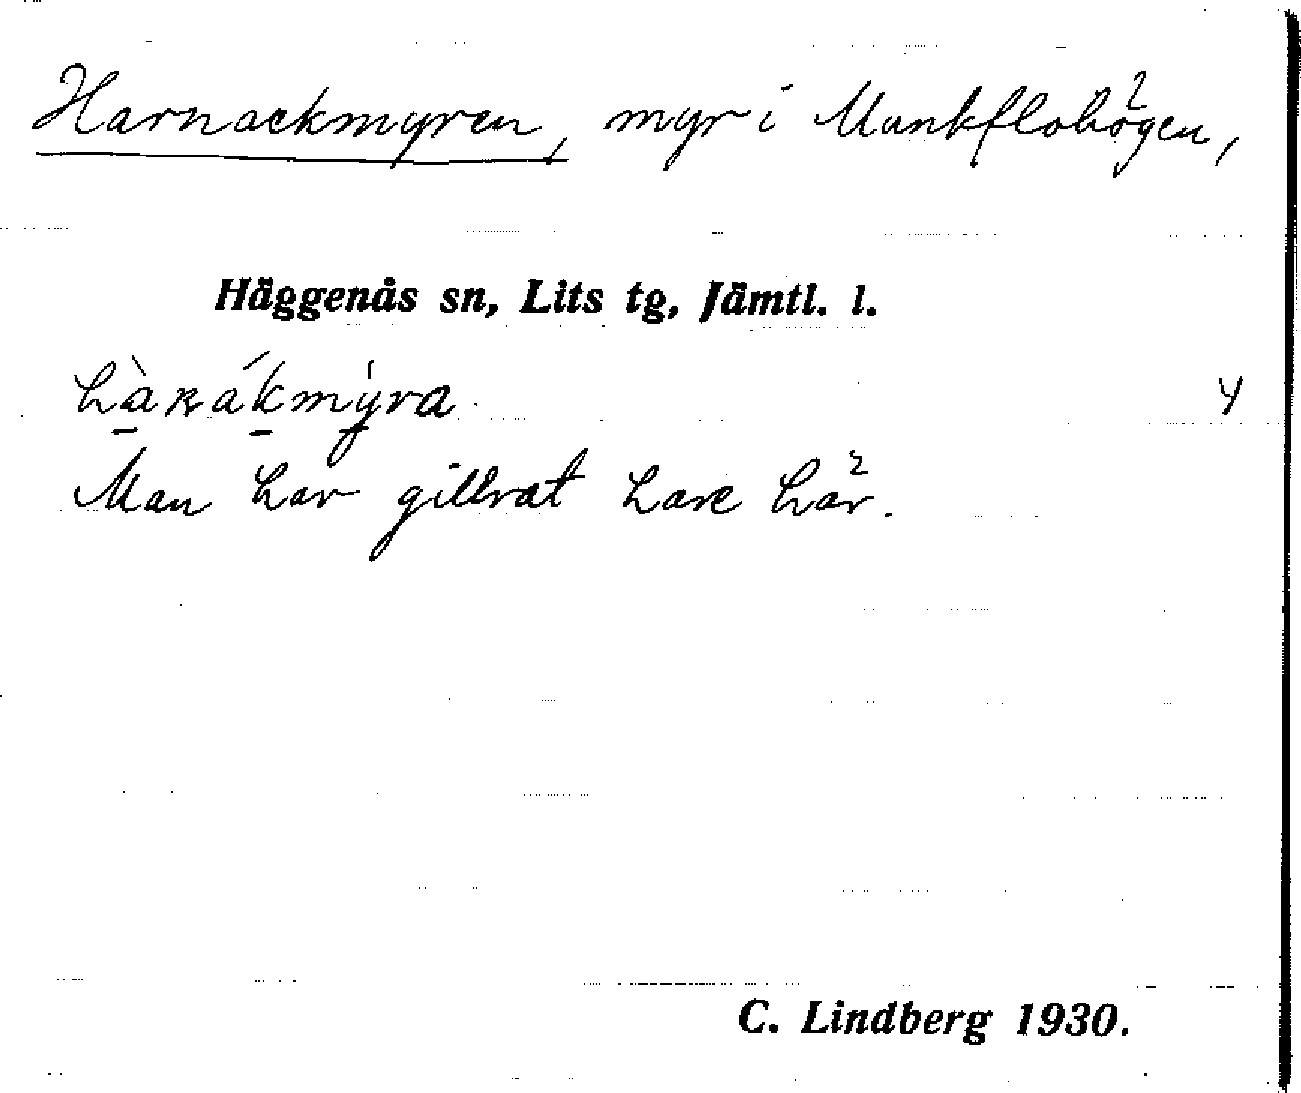 Harnackmyren, myr i Munkflohögen,
Häggenås sn, Lits tg, Jämtl. l.
4
Man har gillrat hare här.
C. Lindberg 1930.